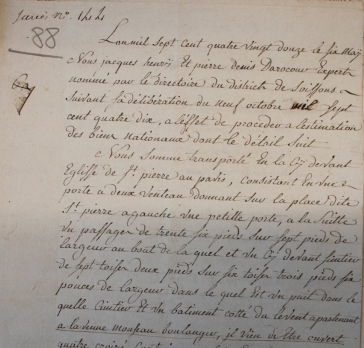 Suivis n.° 144
88
L'an mil sept cent quatre vingt douze le six May
Nous jacques henris Et pierre denis Darocour Expert
nommé par le directoire du districts de Soissons
Suivant sa délibération du neuf octobre mil sept
cent quatre dix, a l'effet de proceder a l'estimation
des bien nationaux dont le détail Suit
Nous Somme transporté En la Cy devant
Eglisse de St. pierre au parvis, Consistant En une
porte a deux venteau donnant sur la place dite
St. pierre a gauche une petitte porte, a la Suitte
un passager de trente six pieds sur sept pieds de
largeur au bout de la quel et un Cy devant Cimtier
de sept toises deux pieds sur six toises trois pieds six
pouces de largeur dans le quel Est un puit dans le
quelle Cimtier Et un batiment cotté du levent apartenant
a la veuve Monseau boulanger, il vien de Etre ouvert
quatre